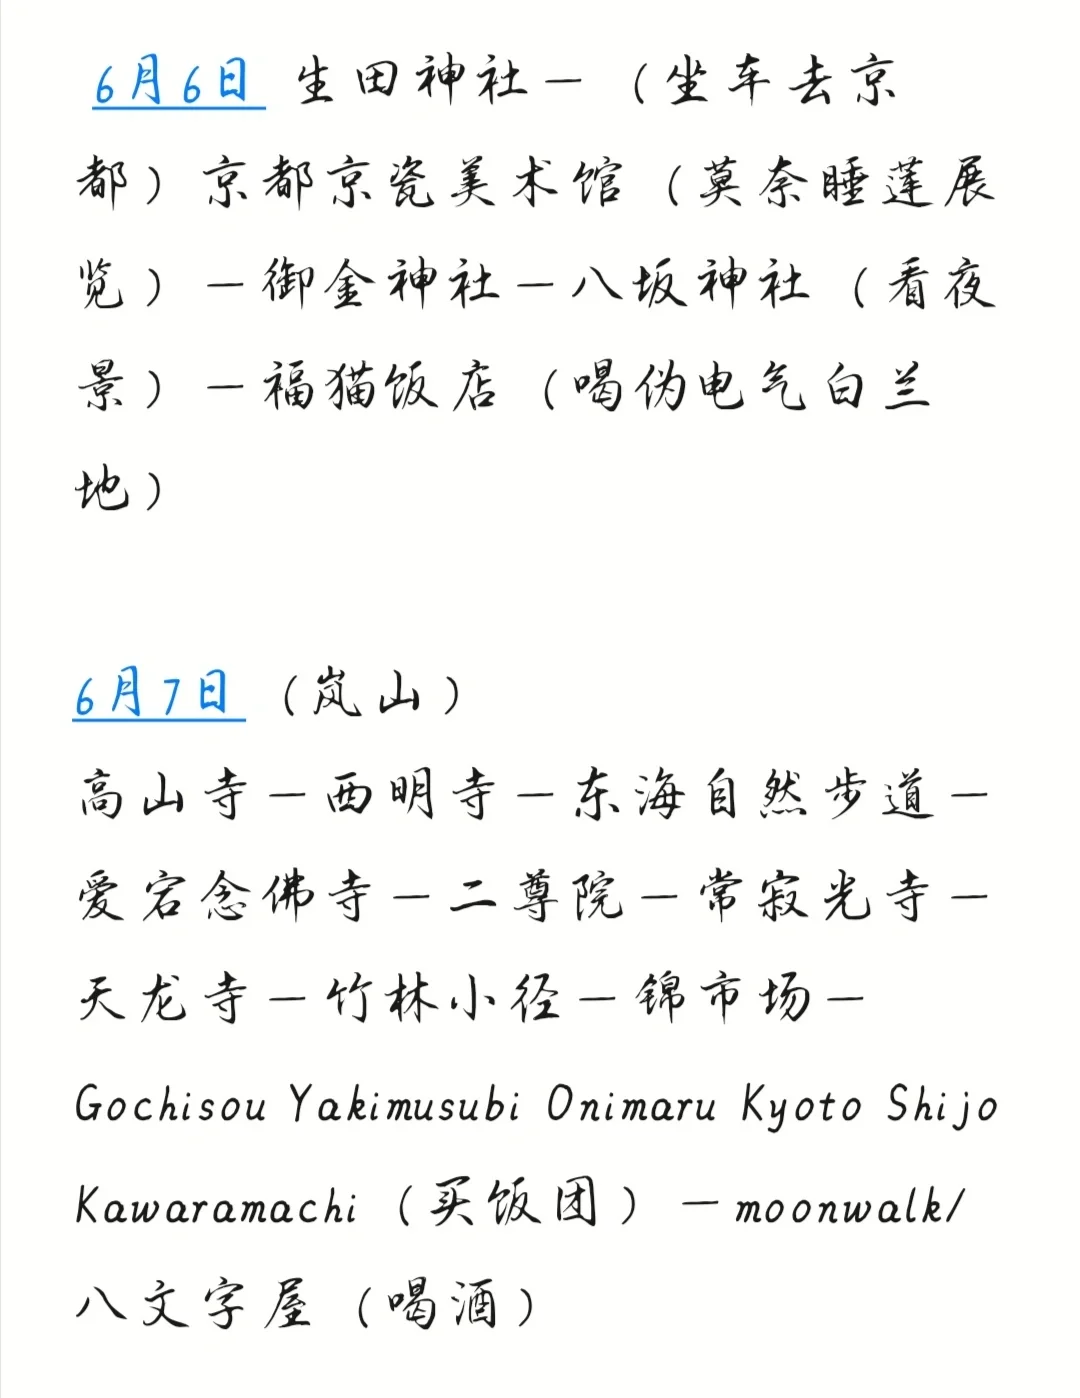 6月6日 生田神社－（坐车去京
都）京都京瓷美术馆（莫奈睡莲展
览）－御金神社－八坂神社（看夜
景）－福猫饭店（喝伪电气白兰
地）
6月7日（岚山）
高山寺－西明寺－东海自然步道－
爱宕念佛寺－二尊院－常寂光寺－
天龙寺－竹林小径－锦市场－
Gochisou Yakimusubi Onimaru Kyoto Shijo
Kawaramachi（买饭团）－moonwalk/
八文字屋（喝酒）